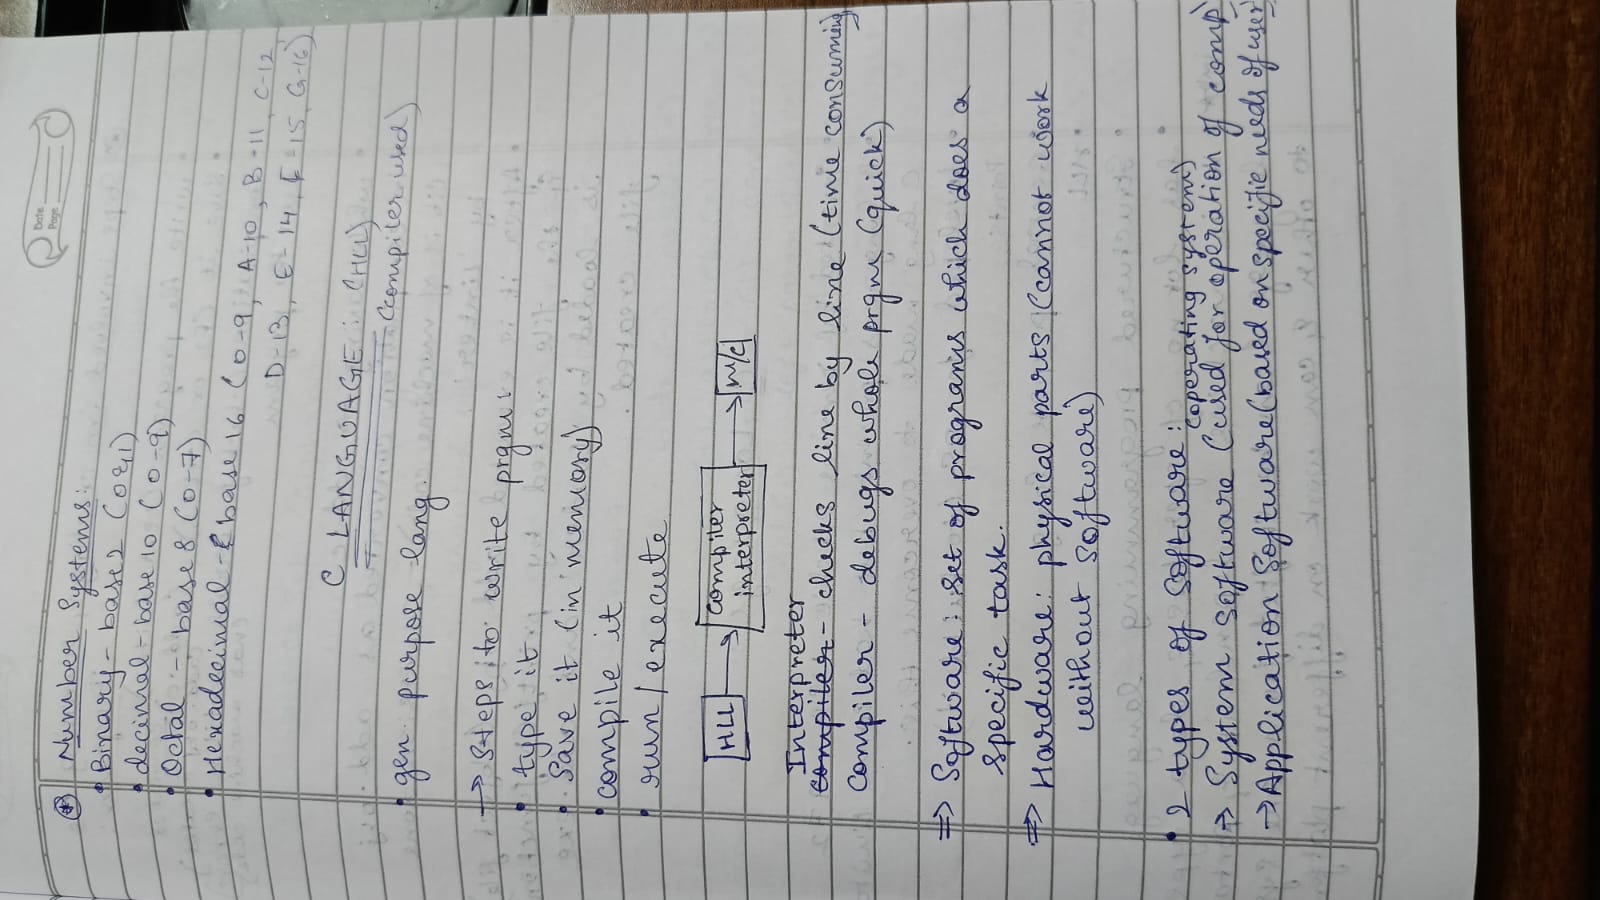 Date
Page
Number Systems:
• Binary - base2 (0&1)
• decimal - base 10 (0-9)
• Octal - base 8 (0-7)
• Hexadecimal - base 16 (0-9, A-10, B-11, C-12,
D-13, E-14, F-15, G-16)
C LANGUAGE : (HLL)
(compiler used)
• gen. purpose lang.
→ Steps to write prgm:
• type it
• Save it (in memory)
• compile it
• run/execute
HLL → compiler interpreter → m/c
Interpreter
compiler - checks line by line (time consuming)
Compiler - debugs whole prgm (quick)
⇒ Software: set of programs which does a
specific task.
⇒ Hardware: physical parts (cannot work
without software)
• 2 types of Software:
(operating system)
→ System software (used for operation of comp)
→ Application Software (based on specific needs of user)